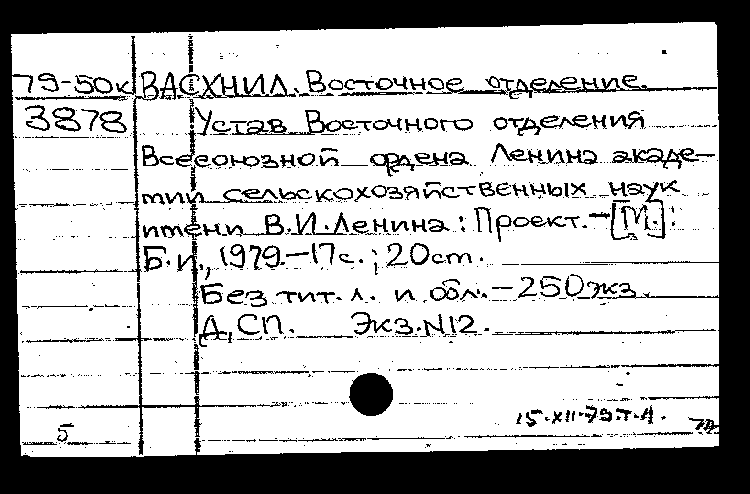 79-50к ВАСХНИЛ. Восточное отделение.
3878 Устав Восточного отделения
Всесоюзной ордена Ленина акаде-
мии сельскохозяйственных наук
имени В.И.Ленина: Проект.-[М.]:
Б.и., 1979.-17с.; 20 см.
Без тит.л. и обл.-250 экз.
Д,СП. Экз.N12.
15.XII.79.Т.А.
5